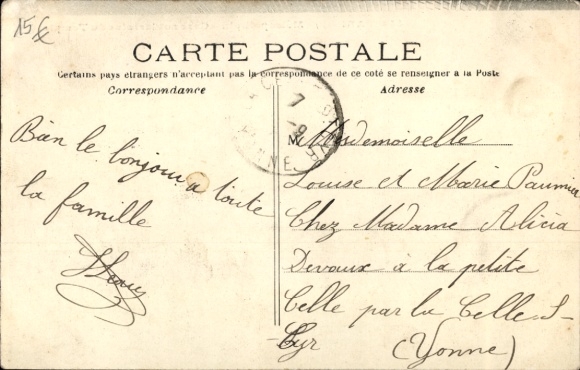 15€
CARTE POSTALE
Certains pays étrangers n'acceptant pas la correspondance de ce coté se renseigner a la Poste
Correspondance
Adresse
Bien le bonjour a toute
la famille
M Mesdemoiselle
Louise et Marie Paumier
Chez Madame Alicia
Devaux à la petite
Celle par la Celle S-
Cyr (Yonne)
7
-9